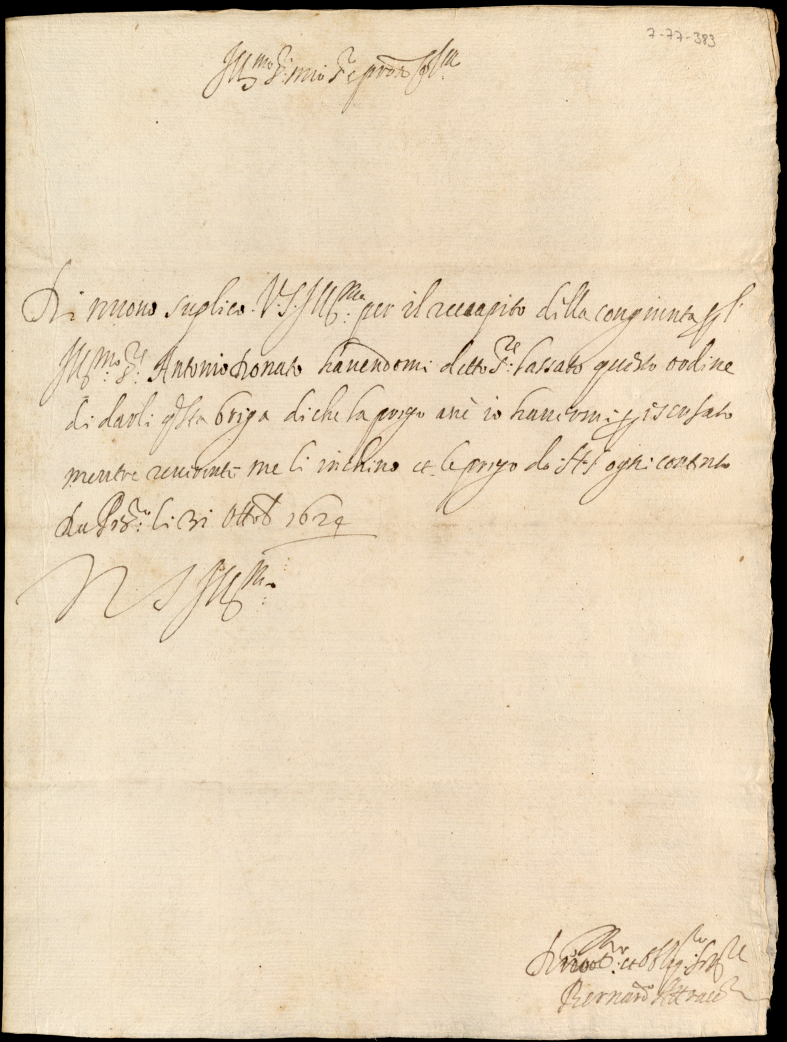 7-77-383
Ill:mo S:r mio S.r e pron
Di nuovo suplico V.S. Ill:ma per il reccapito della congiunta p l'
Ill:mo S:r Antonio Donato havendomi detto S:re lassato questo ordine
di darli q.sta briga di che la prego anè io havermi p iscusato
mentre me li inchino et le prego da N.S. ogni contento
Da li 31 Ottob 1624
V S Ill:ma
et Oblig:
Bernardo